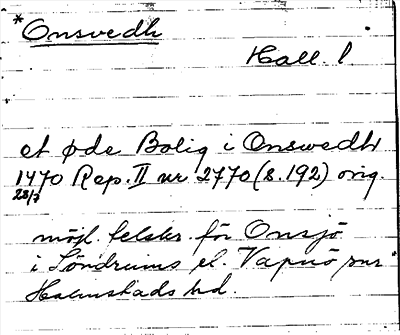 *Onsvedh
Hall. l.
et øde Bolig i Onswedh
1470 Rep. II nr 2770 (s. 192) orig.
28/7
möjl. felskr. för Onsjö
i Söndrums el. Vapnö snr
Halmstads hd.